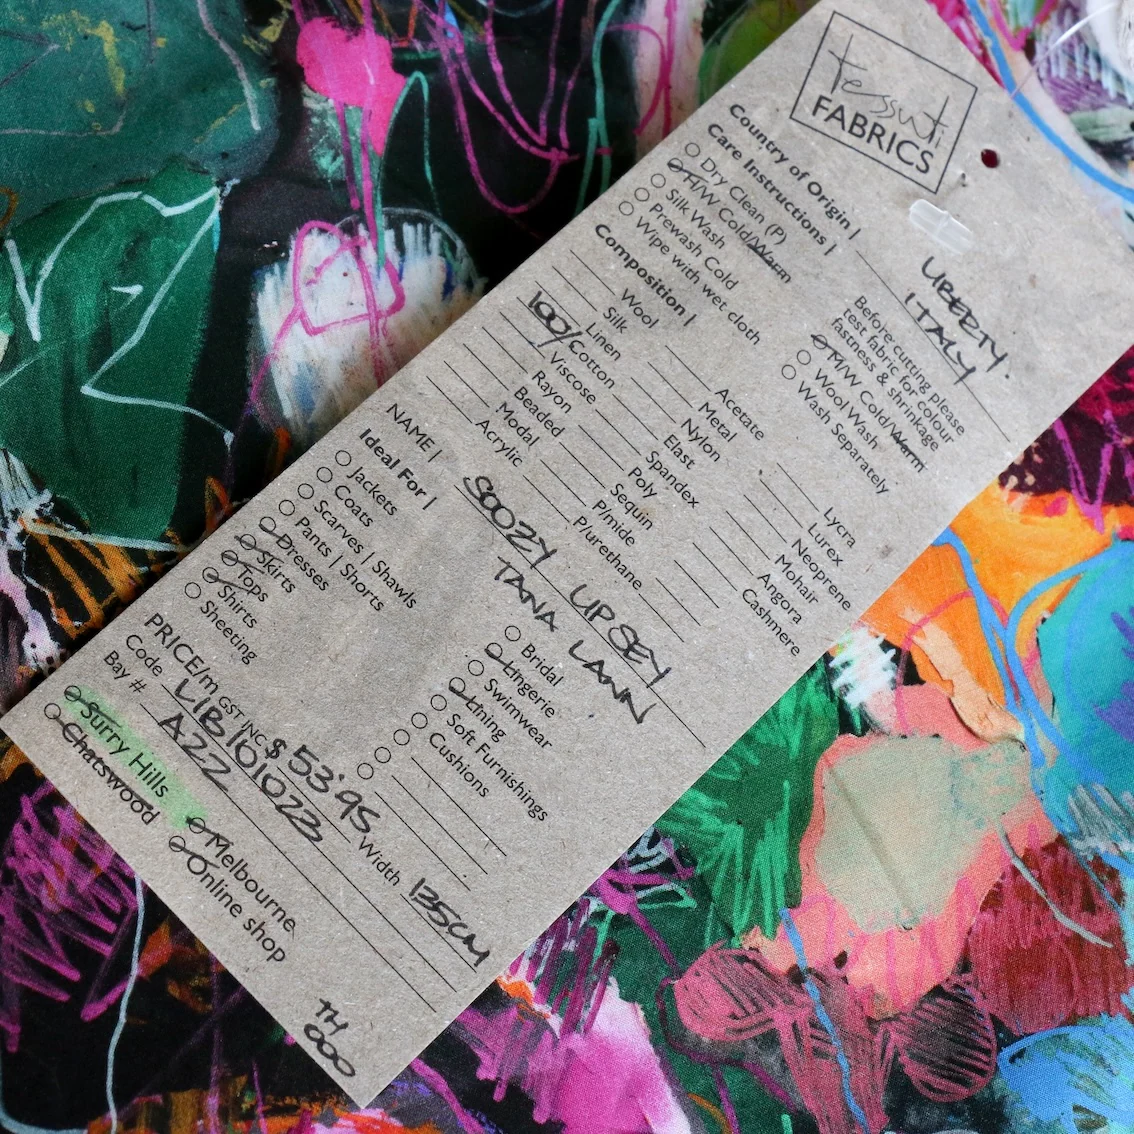 tessuti
FABRICS
Country of Origin |
LIBERTY.
ITALY
Care Instructions |
Dry Clean (P)
H/W Cold/Warm
Silk Wash
Prewash Cold
Wipe with wet cloth
Before cutting please
test fabric for colour
fastness & shrinkage
M/W Cold/Warm
Wool Wash
Wash Separately
Composition |
Wool
Silk
Linen
100% Cotton
Viscose
Rayon
Beaded
Modal
Acrylic
Acetate
Metal
Nylon
Elast
Spandex
Poly
Sequin
P/mide
P/urethane
Lycra
Lurex
Neoprene
Mohair
Angora
Cashmere
NAME |
SOOZY UPSEY
TANA LAWN
Ideal For |
Jackets
Coats
Scarves | Shawls
Pants | Shorts
Dresses
Skirts
Tops
Shirts
Sheeting
Bridal
Lingerie
Swimwear
Lining
Soft Furnishings
Cushions
PRICE/m GST INC $53.95. Width 135CM
Code LIB101023
Bay # A22
Surry Hills
Chatswood
Melbourne
Online shop
TH
000